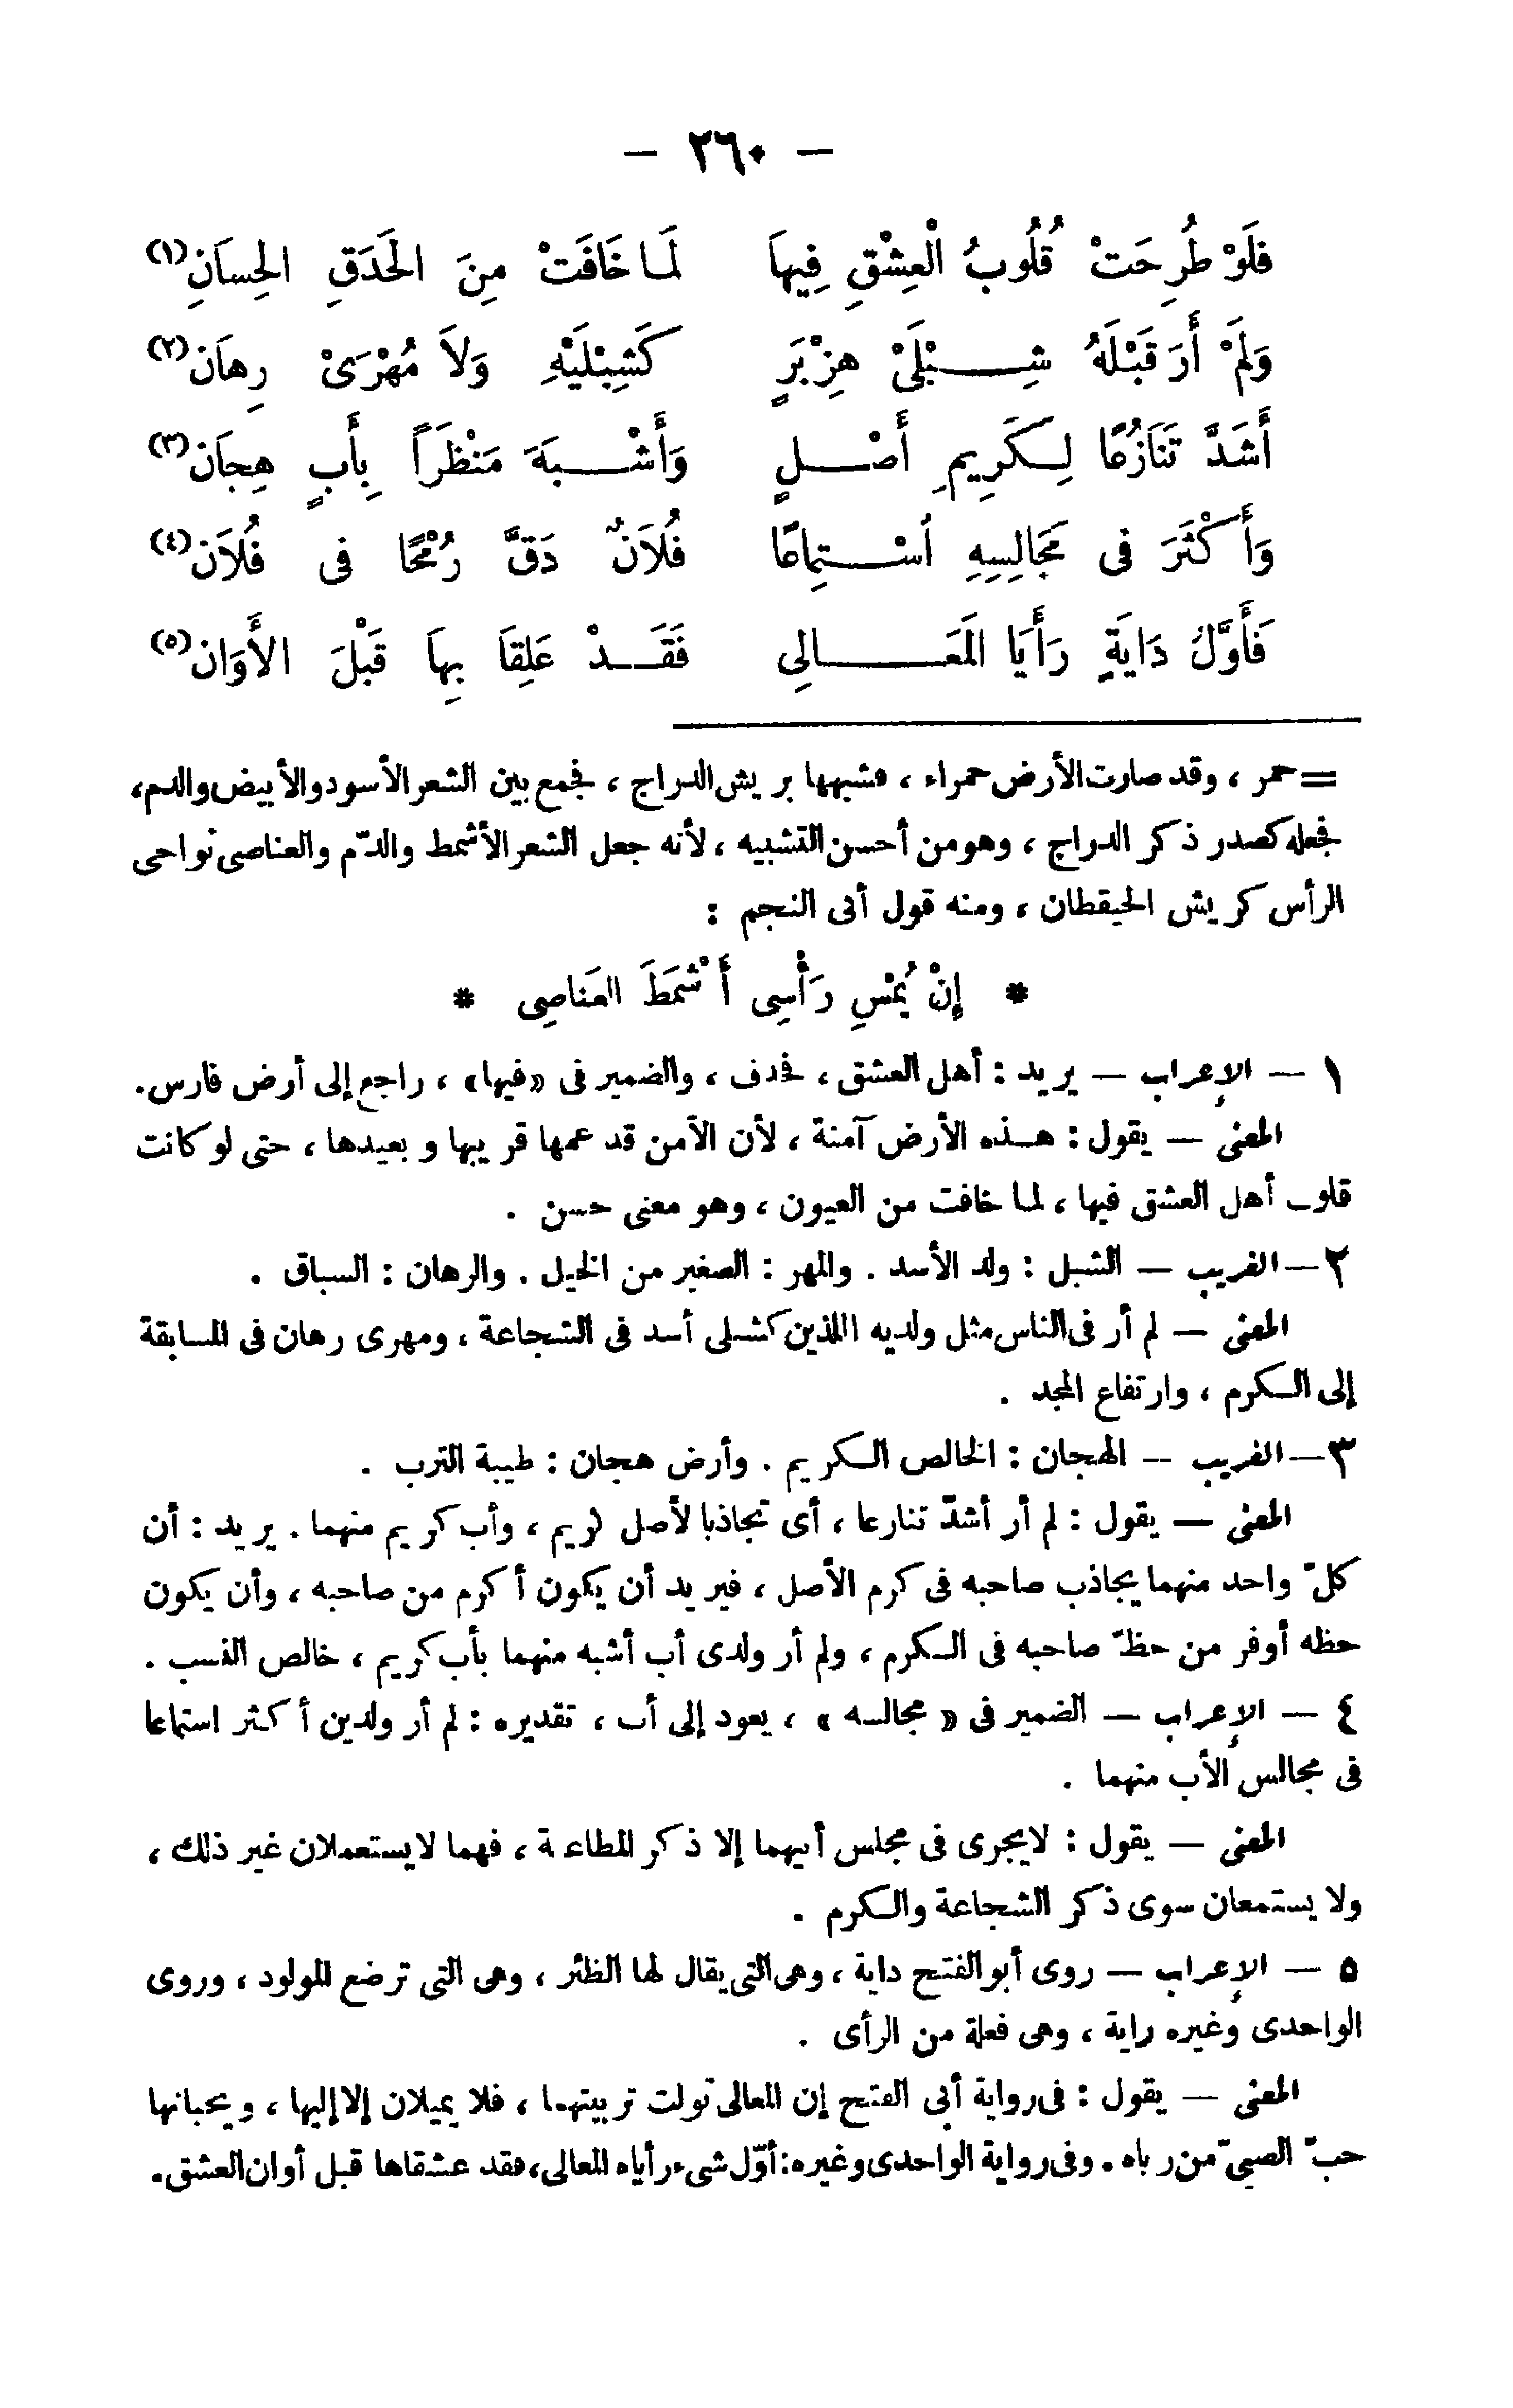 — ٢٦٠ —
فَلَوْ طُرِحَتْ قُلُوبُ الْعِشْقِ فِيهَا لَمَا خَافَتْ مِنَ الحَدَقِ الحِسَانِ(١)
وَلَمْ أَرَ قَبْلَهُ شِبْلَىْ هِزْبَرٍ كَشِبْلَيْهِ وَلاَ مُهْرَىْ رِهَانِ(٢)
أَشَدَّ تَنَازُعًا لِكَرِيمِ أَصْلٍ وَأَشْبَهَ مَنْظَرًا بِأَبٍ هِجَانِ(٣)
وَأَكْثَرَ فى مَجَالِسِهِ اُسْتِمَاعًا فُلاَنٌ دَقَّ رُمْحًا فى فُلاَنِ(٤)
فَأَوَّلُ دَايَةٍ رَأَيَا المَعَالِى فَقَدْ عَلِقَا بِهَا قَبْلَ الأَوَانِ(٥)
= حمر ، وقد صارت الأرض حمراء ، فشبهها بريش الدراج ، فجمع بين الشعر الأسود والأبيض والدم،
فجعله كصدر ذكر الدراج ، وهو من أحسن التشبيه ، لأنه جعل الشعر الأشمط والدّم والعناصى نواحى
الرأس كريش الحيقطان ، ومنه قول أبى النجم :
* إِنْ يُمْسِ رَأْسِى أَشْمَطَ العَنَاصِى *
١ — الإعراب — يريد : أهل العشق ، فحذف ، والضمير فى «فيها» ، راجع إلى أرض فارس.
المعنى — يقول : هذه الأرض آمنة ، لأن الأمن قد عمها قريبها وبعيدها ، حتى لو كانت
قلوب أهل العشق فيها ، لما خافت من العيون ، وهو معنى حسن .
٢ — الغريب — الشبل : ولد الأسد . والمهر : الصغير من الخيل . والرهان : السباق .
المعنى — لم أر فى الناس مثل ولديه اللذين كشبلى أسد فى الشجاعة ، ومهرى رهان فى المسابقة
إلى الكرم ، وارتفاع المجد .
٣ — الغريب — الهجان : الخالص الكريم . وأرض هجان : طيبة الترب .
المعنى — يقول : لم أر أشدّ تنازعا ، أى تجاذبا لأصل كريم ، وأب كريم منهما . يريد : أن
كلّ واحد منهما يجاذب صاحبه فى كرم الأصل ، فيريد أن يكون أكرم من صاحبه ، وأن يكون
حظه أوفر من حظّ صاحبه فى الكرم ، ولم أر ولدى أب أشبه منهما بأب كريم ، خالص النسب .
٤ — الإعراب — الضمير فى « مجالسه » ، يعود إلى أب ، تقديره : لم أر ولدين أكثر استماعا
فى مجالس الأب منهما .
المعنى — يقول : لايجرى فى مجلس أبيهما إلا ذكر المطاعنة ، فهما لايستعملان غير ذلك ،
ولا يستمعان سوى ذكر الشجاعة والكرم .
٥ — الإعراب — روى أبو الفتح داية ، وهى التى يقال لها الظئر ، وهى التى ترضع المولود ، وروى
الواحدى وغيره راية ، وهى فعلة من الرأى .
المعنى — يقول : فى رواية أبى الفتح إن المعالى تولت تربيتهما ، فلا يميلان إلا إليها ، ويحبانها
حبّ الصبىّ من رباه . وفى رواية الواحدى وغيره: أوّل شىء رأياه المعالى، فقد عشقاها قبل أوان العشق.